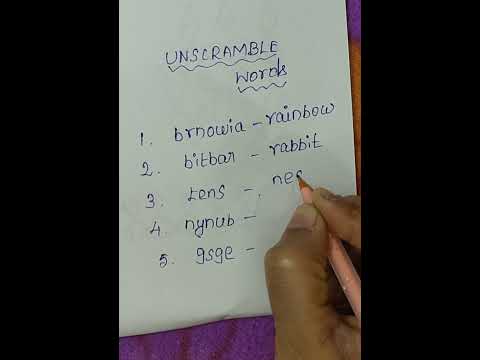 UNSCRAMBLE
Words
1. brnowia - rainbow
2. bitbar - rabbit
3. tens - nes
4. nynub -
5. gsge -